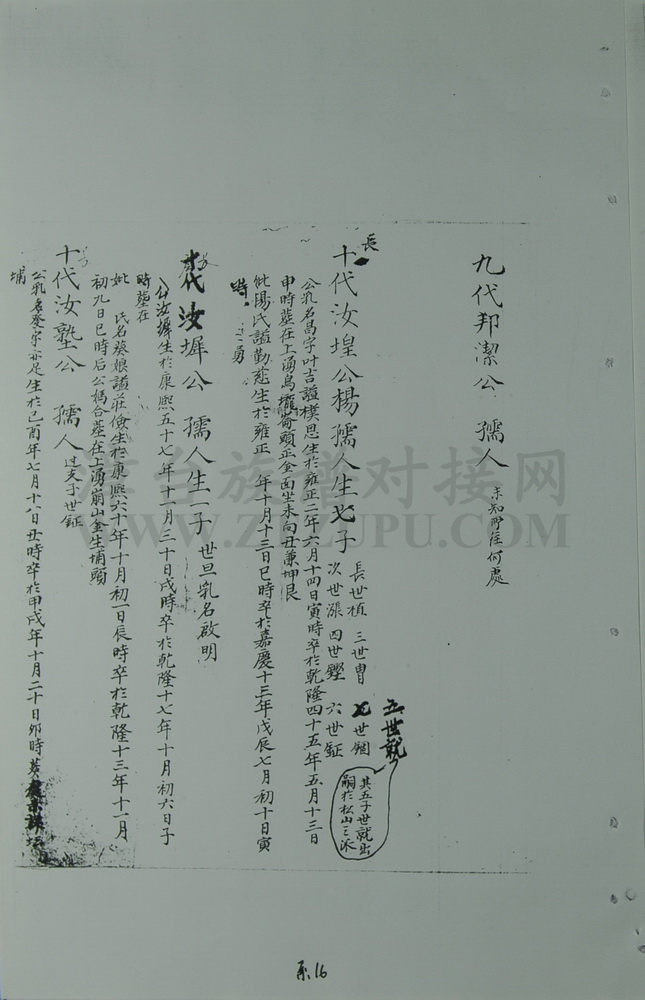 九代邦潔公 孺人 未知所在何處
長
十代汝埕公楊孺人生七子 長世植 三世胄 五世就
次世漲 四世鏗 六世鉦 七世錮
其五子世就出
嗣於松山三派
公乳名昌字叶吉謚樸思生於雍正二年六月十四日寅時卒於乾隆四十五年五月十三日
申時葬在上湧烏攏崙頭正金面坐未向丑兼坤艮
妣楊氏謚勤慈生於雍正 年十月十三日巳時卒於嘉慶十三年戊辰七月初十日寅
時
次
十代汝墀公 孺人生一子 世旦乳名啟明
公汝墀生於康熙五十七年十一月三十日戌時卒於乾隆十七年十月初六日子
時葬在
妣 氏名葵娘謚莊儉生於康熙六十年十月初一日辰時卒於乾隆十三年十一月
初九日巳時后公媽合葬在上湧崩山金生埔頭
十代汝塾公 孺人 过炎子世鉦
公乳名變字亦足生於己酉年七月十八日丑時卒於甲戌年十月二十日卯時葬
埔
系16
WWW.ZTZUPU.COM